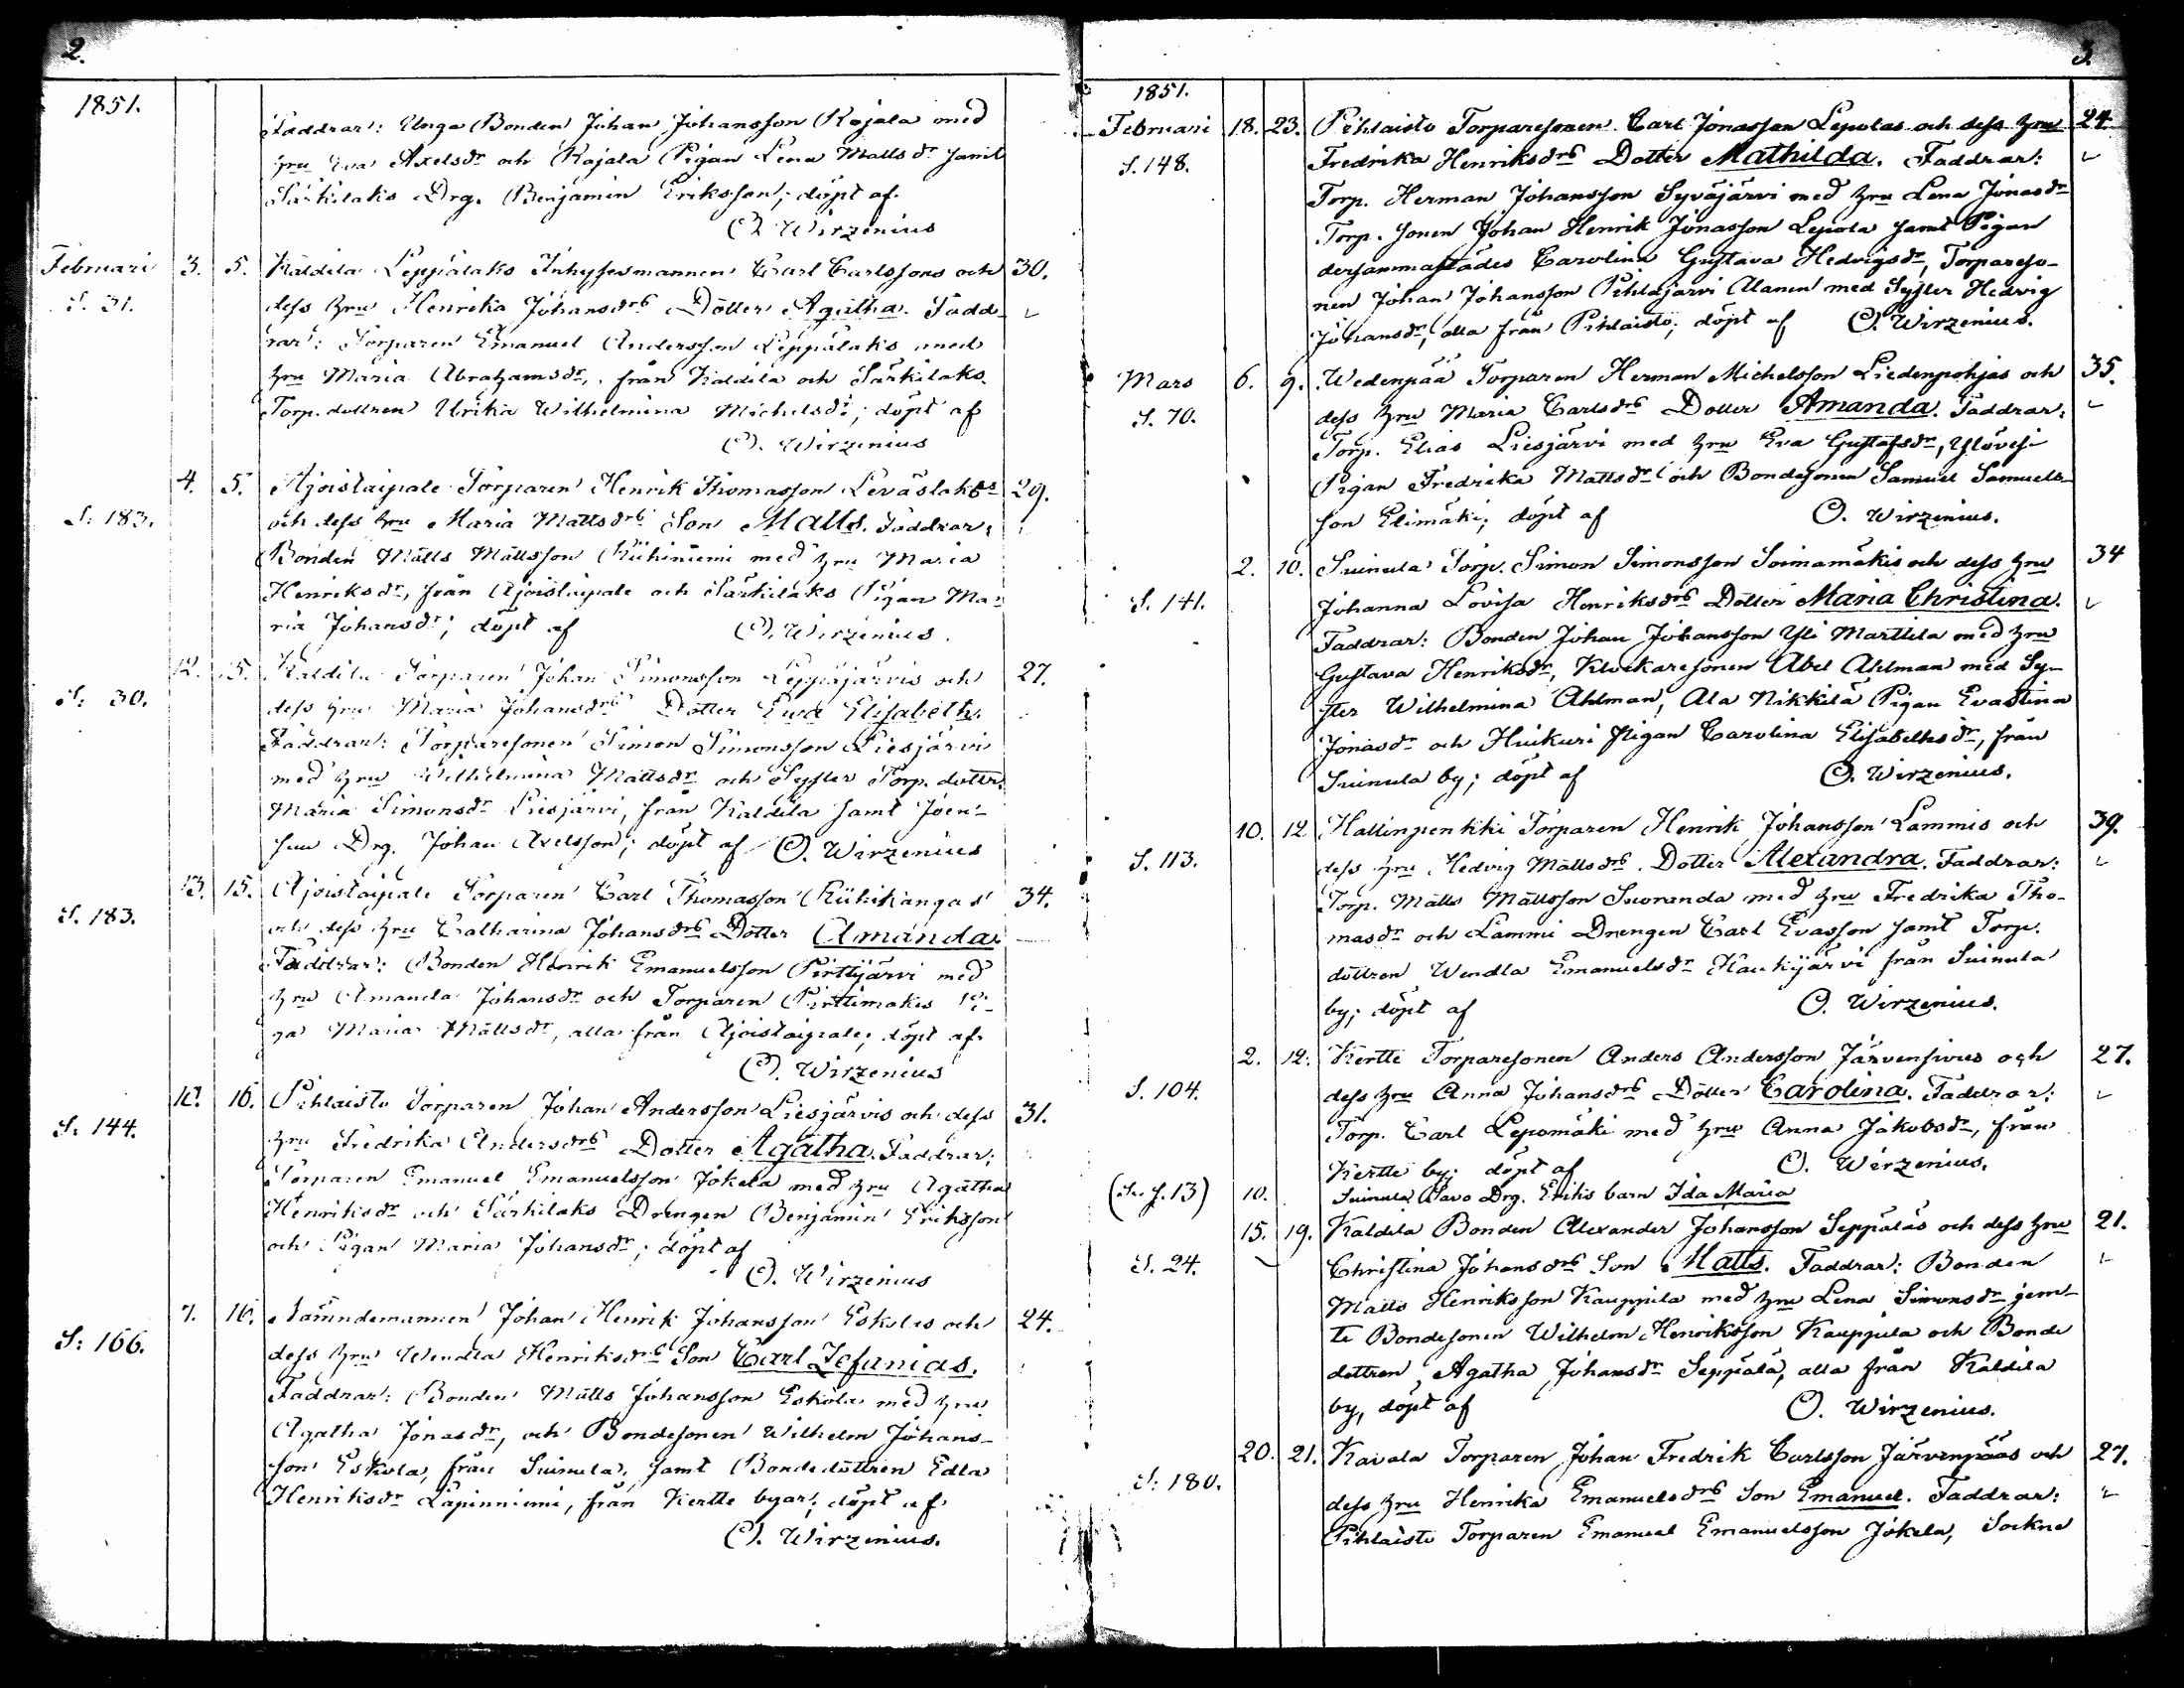 2.
1851.
Faddrar: Unga Bonden Johan Johansson Rajala med
hru Eva Axelsdr och Rajala Pigan Lena Mattsdr samt
Särkilaks Drg. Benjamin Eriksson; döpt af
O. Wirzenius
Februari 3. 5. Kaldila Leppälaks Inhysesmannen Carl Carlssons och 30.
S. 31. dess hru Henrika Johansdrs Dotter Agatha. Fadd-
rar: Torparen Emanuel Andersson Leppälaks med
hru Maria Abrahamsdr, från Kaldila och Särkilaks
Torp. dottren Ulrika Wilhelmina Michelsdr; döpt af
O. Wirzenius
4. 5. Ajoistaipale Torparen Henrik Thomasson Leväslaks 29.
S: 183. och dess hru Maria Mattsdrs Son Matts. Faddrar:
Bonden Matts Mattsson Riihiniemi med hru Maria
Henriksdr, från Ajoistaipale och Särkilaks Pigan Ma-
ria Johansdr; döpt af O. Wirzenius.
12. 15. Kaldila Torparen Johan Simonsson Leppäjärvis och 27.
S: 30. dess hru Maria Johansdrs Dotter Ewa Elisabeth.
Faddrar: Torparesonen Simon Simonsson Liesjärvi
med hru Wilhelmina Mattsdr och Syster Torp. dottr.
Maria Simonsdr Liesjärvi, från Kaldila samt Joen-
suu Drg. Johan Axelsson; döpt af O. Wirzenius
13. 15. Ajoistaipale Torparen Carl Thomasson Riihikangas 34.
S. 183. och dess hru Catharina Johansdrs Dotter Amanda.
Faddrar: Bonden Henrik Emanuelsson Pirttijärvi med
hru Amanda Johansdr och Torparen Pirttimäkis Pi-
ga Maria Mattsdr, alla från Ajoistaipale; döpt af
O. Wirzenius
16. Pihlaisto Torparen Johan Andersson Liesjärvis och dess 31.
S. 144. hru Fredrika Andersdrs Dotter Agatha. Faddrar:
Torparen Emanuel Emanuelsson Jokela med hru Agatha
Henriksdr och Särkilaks Drengen Benjamin Eriksson
och Pigan Maria Johansdr; döpt af
O. Wirzenius
7. 16. Nämndemannen Johan Henrik Johansson Eskolas och 24.
S: 166. dess hru Wendla Henriksdrs Son Carl Zefanias.
Faddrar: Bonden Matts Johansson Eskola med hru
Agatha Jonasdr, och Bondesonen Wilhelm Johans-
son Eskola, från Suinula, samt Bondedottren Edla
Henriksdr Lapinniemi, från Kertte byar; döpt af
O. Wirzenius.
3.
1851.
Februari 18. 23. Pihlaisto Torparesonen Carl Jonasson Lepolas och dess hru 24
S. 148. Fredrika Henriksdrs Dotter Mathilda. Faddrar:
Torp. Herman Johansson Syväjärvi med hru Lena Jonasdr
Torp. sonen Johan Henrik Jonasson Lepola samt Pigan
dersammastädes Carolina Gustava Hedvigsdr, Torpareso-
nen Johan Johansson Pihlajarvi Alanen med Syster Hedvig
Johansdr, alla från Pihlaisto; döpt af O. Wirzenius.
Mars 6. 9. Wedenpää Torparen Herman Michelsson Liedenpohjas och 35.
S. 70. dess hru Maria Carlsdrs Dotter Amanda. Faddrar:
Torp. Elias Liesjärvi med hru Eva Gustafsdr, Ylövesi
Pigan Fredrika Mattsdr och Bondesonen Samuel Samuels-
son Elimäki; döpt af O. Wirzenius.
2. 10. Suinula Torp. Simon Simonsson Soimamäkis och dess hru 34
S. 141. Johanna Lovisa Henriksdrs Dotter Maria Christina.
Faddrar: Bonden Johan Johansson Yli Marttila med hru
Gustava Henriksdr, Klockaresonen Abel Ahlman med Sy-
ster Wilhelmina Ahlman, Ala Nikkilä Pigan Evastina
Jonasdr och Huikuri Pigan Carolina Elisabethsdr, från
Suinula by; döpt af O. Wirzenius.
10. 12 Hallinpenkki Torparen Henrik Johansson Lammis och 39.
S. 113. dess hru Hedvig Mattsdrs Dotter Alexandra. Faddrar:
Torp. Matts Mattsson Suoranda med hru Fredrika Tho-
masdr och Lammi Drengen Carl Evasson samt Torp.
dottren Wendla Emanuelsdr Haukijärvi från Suinula
by; döpt af O. Wirzenius.
2. 12. Kertte Torparesonen Anders Andersson Järvensivus och 27.
S. 104. dess hru Anna Johansdrs Dotter Carolina. Faddrar:
Torp. Carl Lepomäki med hru Anna Jakobsdr, från
Kertte by; döpt af O. Wirzenius.
(Se s. 13) 10. Suinula Paavo Drg. Eriks barn Ida Maria
15. 19. Kaldila Bonden Alexander Johansson Seppäläs och dess hru 21.
S. 24. Christina Johansdrs Son Matts. Faddrar: Bonden
Matts Henriksson Kauppila med hru Lena Simonsdr jem-
te Bondesonen Wilhelm Henriksson Kauppila och Bonde
dottren Agatha Johansdr Seppälä, alla från Kaldila
by, döpt af O. Wirzenius.
20. 21. Kavala Torparen Johan Fredrik Carlsson Järvenpääs och 27.
S: 180. dess hru Henrika Emanuelsdrs Son Emanuel. Faddrar:
Pihlaisto Torparen Emanuel Emanuelsson Jokela, Sockne